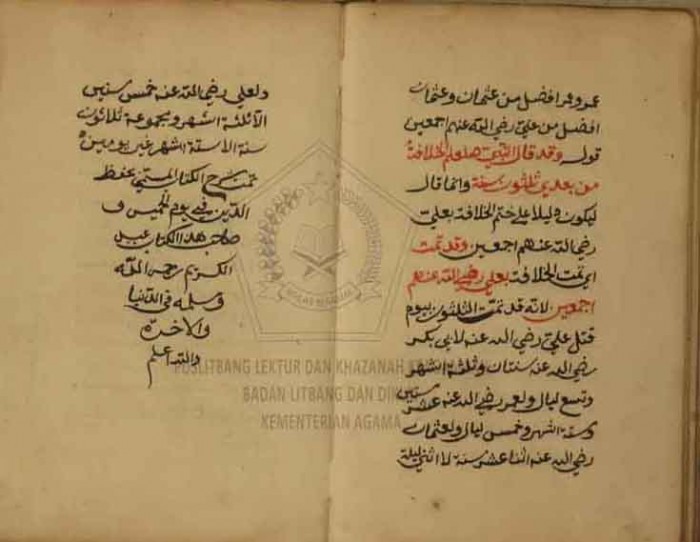 عمر وعمر افضل من عثمان وعثمان
افضل من علي رضي الله عنهم اجمعين
قوله وقد قال النبي صلعم الخلافة
من بعدي ثلثون سنة وانما قال
ليكون دليلا علي ختم الخلافة بعلي
رضي الله عنهم اجمعين وقد تمت
اي تمت الخلافة بعلي رضي الله عنهم
اجمعين لانه قد تمت الثلثون بيوم
قتل علي رضي الله عنه لابي بكر
رضي الله عنه سنتان وثلثة اشهر
وتسع ليال ولعمر رضي الله عنه عشر سنين
وستة اشهر وخمس ليال ولعثمان
رضي الله عنه اثنا عشر سنة لا اثني ليلة
ولعلي رضي الله عنه خمس سنين
الا ثلثة اشهر ومجموعة ثلاثون
سنة الا ستة اشهر غير يومين
تمت شرح الكتاب المسمى بحفظ
الدين في يوم الخميس
صاحب هذا الكتاب عبد
الكريم رحمن الله
وسلمه في الدنيا
والاخره
والله اعلم
PUSLITBANG LEKTUR DAN KHAZANAH
BADAN LITBANG DAN
KEMENTERIAN AGAMA